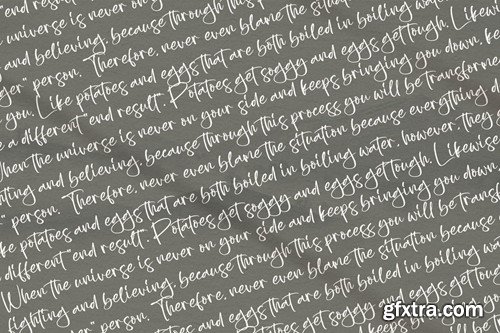 universe is never
and believing, because through this
person. Therefore, never even blame the situation
you Like potatoes and eggs that are both boiled in boiling water
a different "end result". Potatoes get soggy and eggs get tough.
When the universe is never on your side and keeps bringing you down,
and believing, because through this process you will be
person. Therefore, never even blame the situation because everything
potatoes and eggs that are both boiled in boiling water, however, they
different "end result". Potatoes get soggy and eggs get tough. Likewise
When the universe is never on your side and keeps bringing you down
fighting and believing, because through this process you will be
person. Therefore, never even blame the situation
and eggs that are both boiled in boiling
gfxtra.com